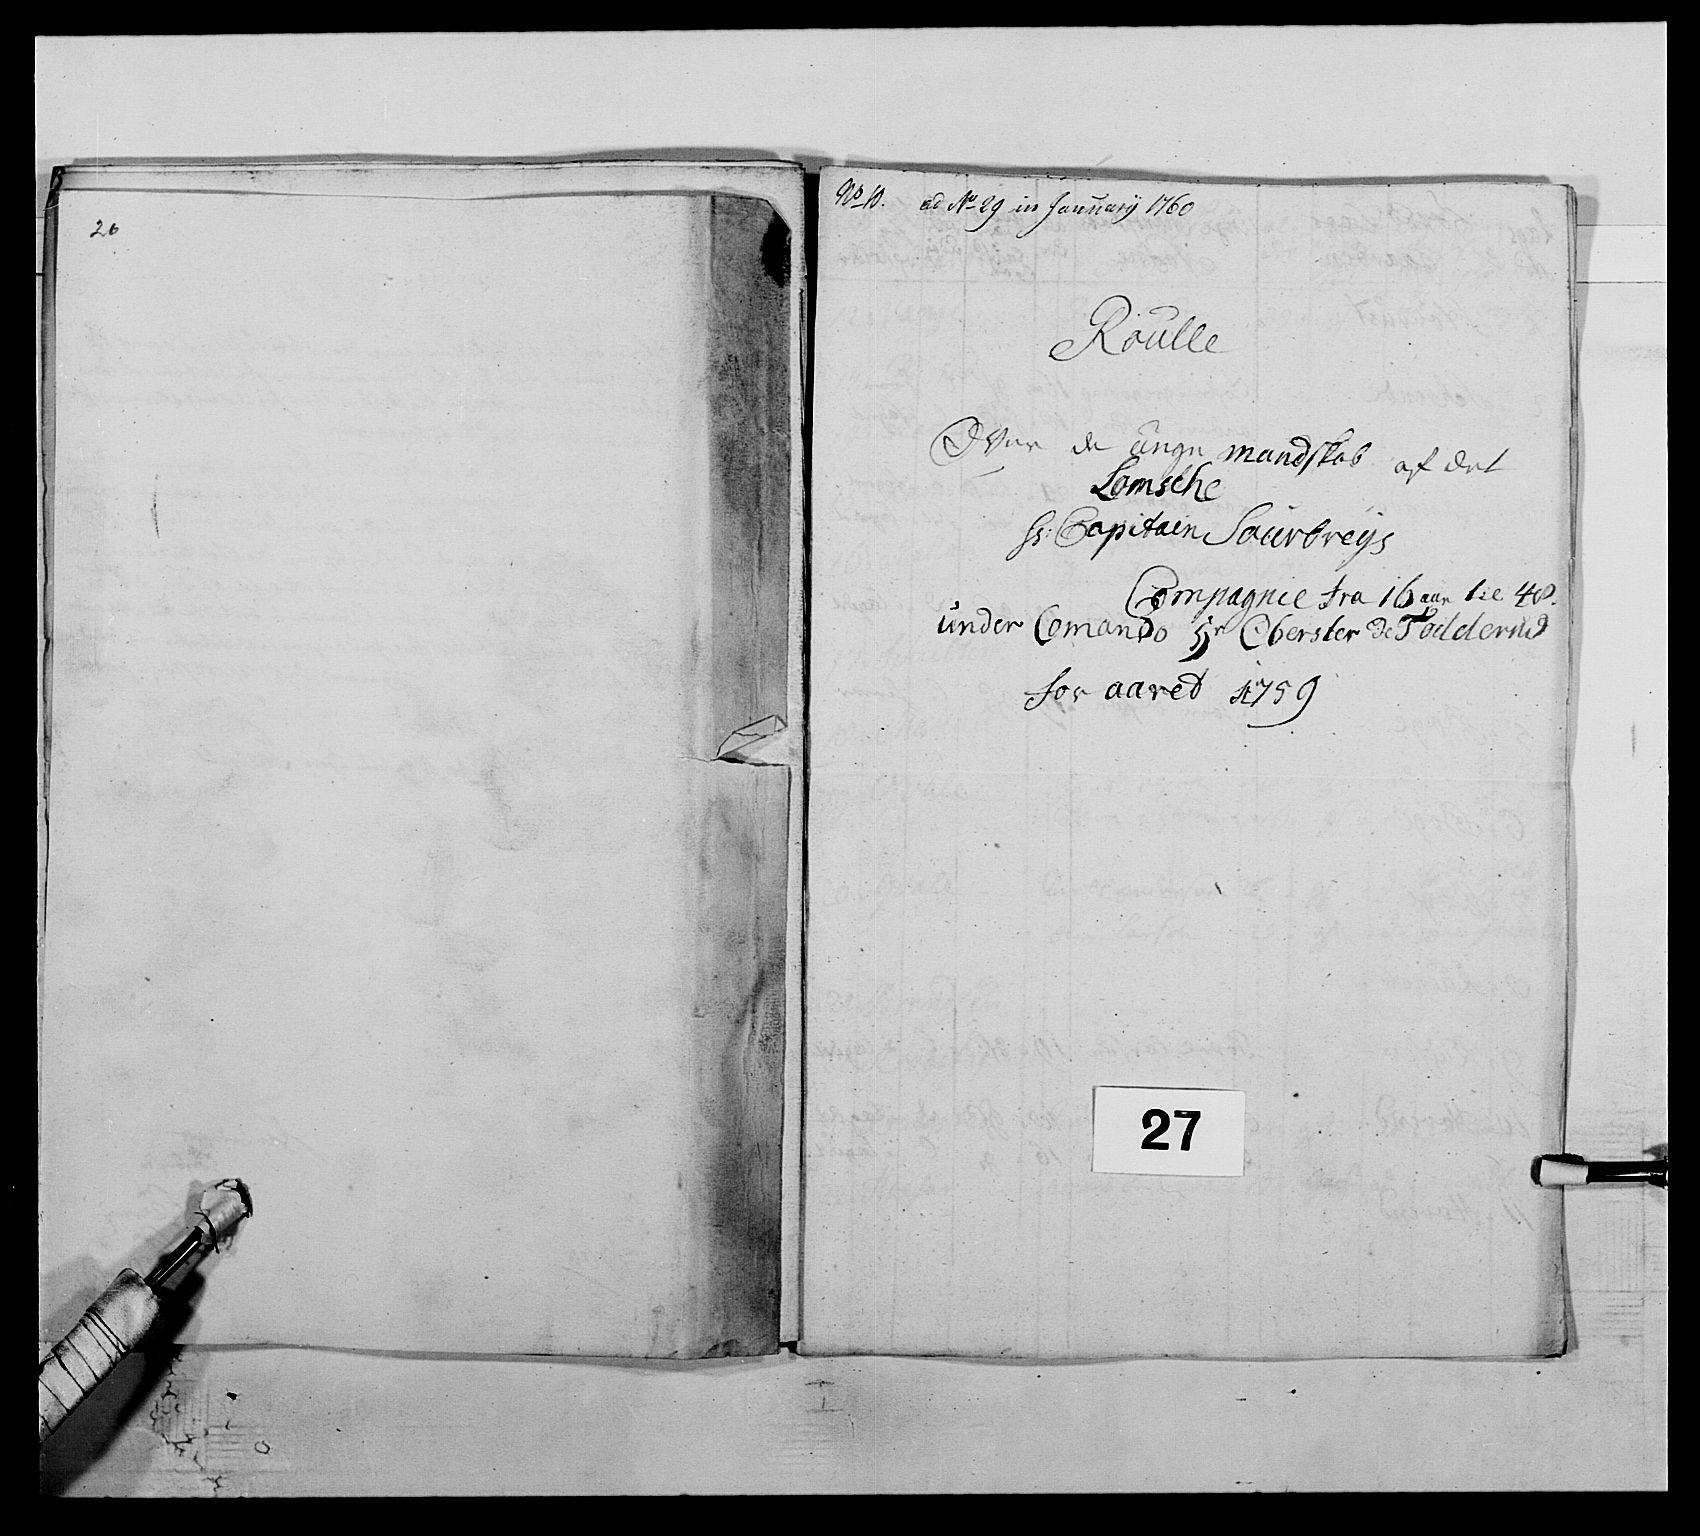 26
No 10. ad No 29 in Januarij 1760
Roulle
Over de unge mandskab af det
Lomsche
Hr: Capitain Saurbreijs
Compagnie fra 16 aar til 48.
under Comando Hr Oberster de
for aaret 1759
27